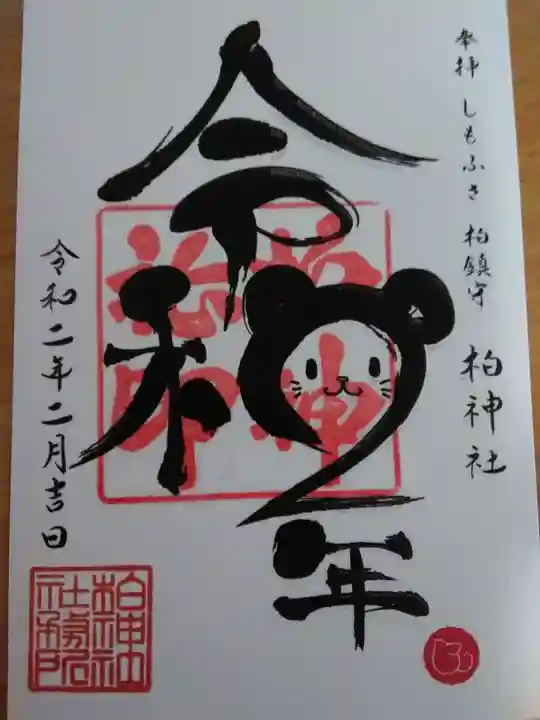 奉拝 しもふさ 柏鎮守 柏神社
令和2年
令和二年二月吉日
柏神社
社務所